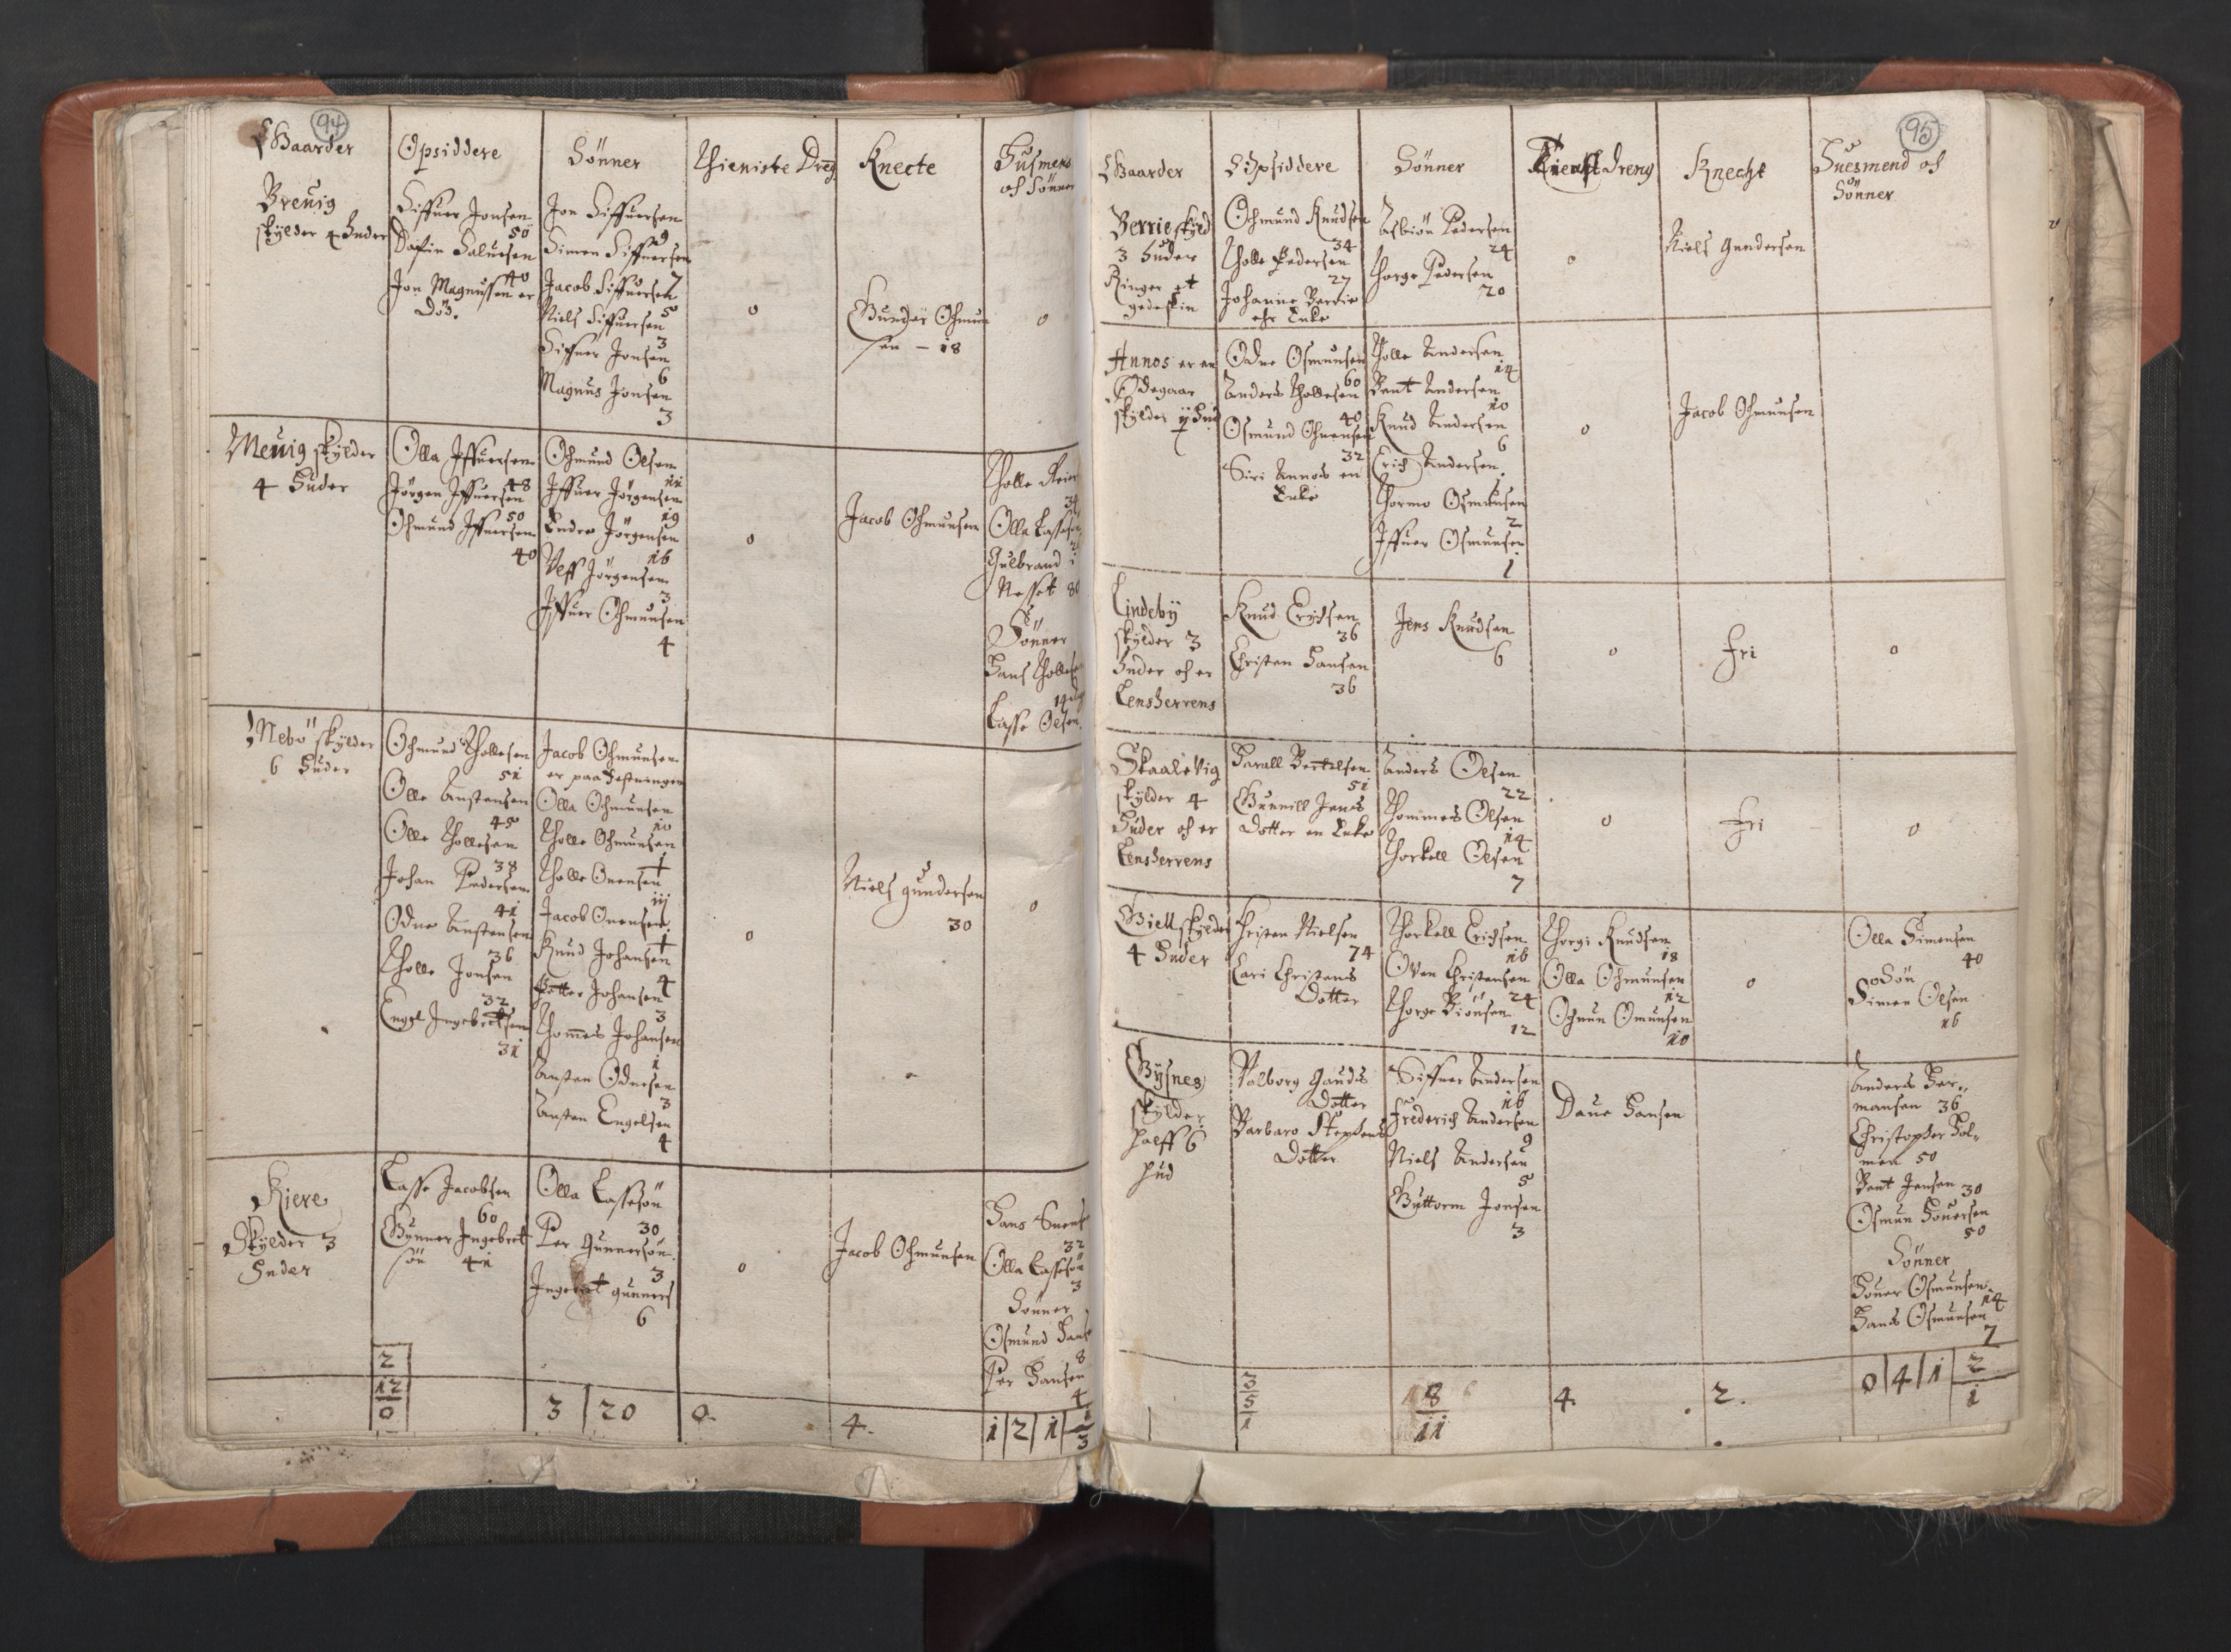 94
Gaarder
Opsiddere
Sönner
Thieniste Dreg
Knecte
Husmend
och Sönner
Breuig
skylder 4 Huder
Siffuer Jonsen
50
Dafin Saluesen
40
Jon Magnussen er
död.
Jon Siffuersen
9
Simen Siffuersen
7
Jacob Siffuersen
5
Niels Siffuersen
3
Siffuer Jonsen
6
Magnus Jonsen
3
0
Gunder Ochmun
sen – 18
0
Meuig skylder
4 Huder
Olla Iffuersen
48
Jörgen Iffuersen
50
Ochmund Iffuersen
40
Ochmund Olsen
11
Iffuer Jörgensen
19
Endre Jörgensen
16
Ueff Jörgensen
3
Iffuer Ochmunsen
4
0
Jacob Ochmunsen
Tholle
34
Olla Lassesen
Gulbrand
Nesset 80
Sönner
Hans Tholles
14
Lasse Olsen
Nebö skylder
6 Huder
Ochmund Thollesen
51
Olle Anstensen
45
Olle Thollesen
38
Johan Pedersen
41
Odne Anstensen
36
Tholle Jonsen
32
Engel Ingebretsen
31
Jacob Ochmunsen
er paa Festningen
Olla Ochmunsen
10
Tholle Ochmunsen
1
Tholle Onensen
Jacob Onensen
1
Knud Johansen
4
Petter Johansen
3
Thommes Johansen
1
Ansten Odnesen
3
Ansten Engelsen
4
0
Niels gundersen
30
0
Kiere
Skylder 3
Huder
Lasse Jacobsen
60
Gunner Ingebret
sön 41
Olla Lassesön
30
Per Gunnersön
3
Ingebret gunners
6
0
Jacob Ochmunsen
Hans
32
Olla Lassesön
3
Sönner
Osmund Hans
8
Per Hansen
4
2
12
0
3 | 20
0.
4.
1 | 2 | 1 |
3
95
Gaarder
Opsiddere
Sönner
Tienst Dreng
Knecht
Huesmend och
Sönner
Berrie skyld
3 Huder
Ringer et
gedeskin
Ochmund Knudsen
34
Tholle Pedersen
27
Johanne Berrie
ehr Enke
Asbiön Pedersen
24
Thorge Pedersen
20
0
Niels Gundersen
Annos er en
Ödegaar
skylder ij Hud
Odne Osmunsen
60
Anders Thollesen
40
Osmund Ohnensen
32
Siri Annos en
Enke
Tholle Andersen
14
Bent Andersen
10
Knud Andersen
6
Erich Andersen
1
Thormo Osmunsen
2
Iffuer Osmunsen
1
0
Jacob Ochmunsen
Lindebÿ
skylder 3
Huder och er
Lensherrens
Knud Erichsen
36
Christen Hansen
36
Jens Knudsen
6
0
fri
0
Skaalevig
skylder 4
Huder och er
Lensherrens
Harall Bertelsen
51
Gunnill Jens
Dotter en Enke
Anders Olsen
22
Thommes Olsen
14
Thorkell Olsen
7
0
fri
0
Giell skylder
4 Huder
Christen Nielsen
74
Kari Christens
Dotter
Thorkell Erichsen
16
Oven Christensen
24
Thorge Biönsen
12
Thorgi Knudsen
18
Olla Ochmunsen
12
Ochmun Omunsen
10
0
Olla Simensen
40
Sön
Simen Olsen
16
Gysnes
skylder
halff 6
Hud
Volborg Gauds
Dotter
Barbaro Stephens
Dotter
Siffuer Andersen
16
Frederich Andersen
9
Niels Andersen
5
Guttorm Jonsen
3
Daue Hansen
Anders Her„
mansen 36
Christopher Hol„
men 50
Bent Jensen 30
Osmun Houersen
50
Sönner
Houer Osmunsen
14
Hans Osmunsen
7
3
5
1
8
11
4.
2.
0 | 4 | 1 | 2
1